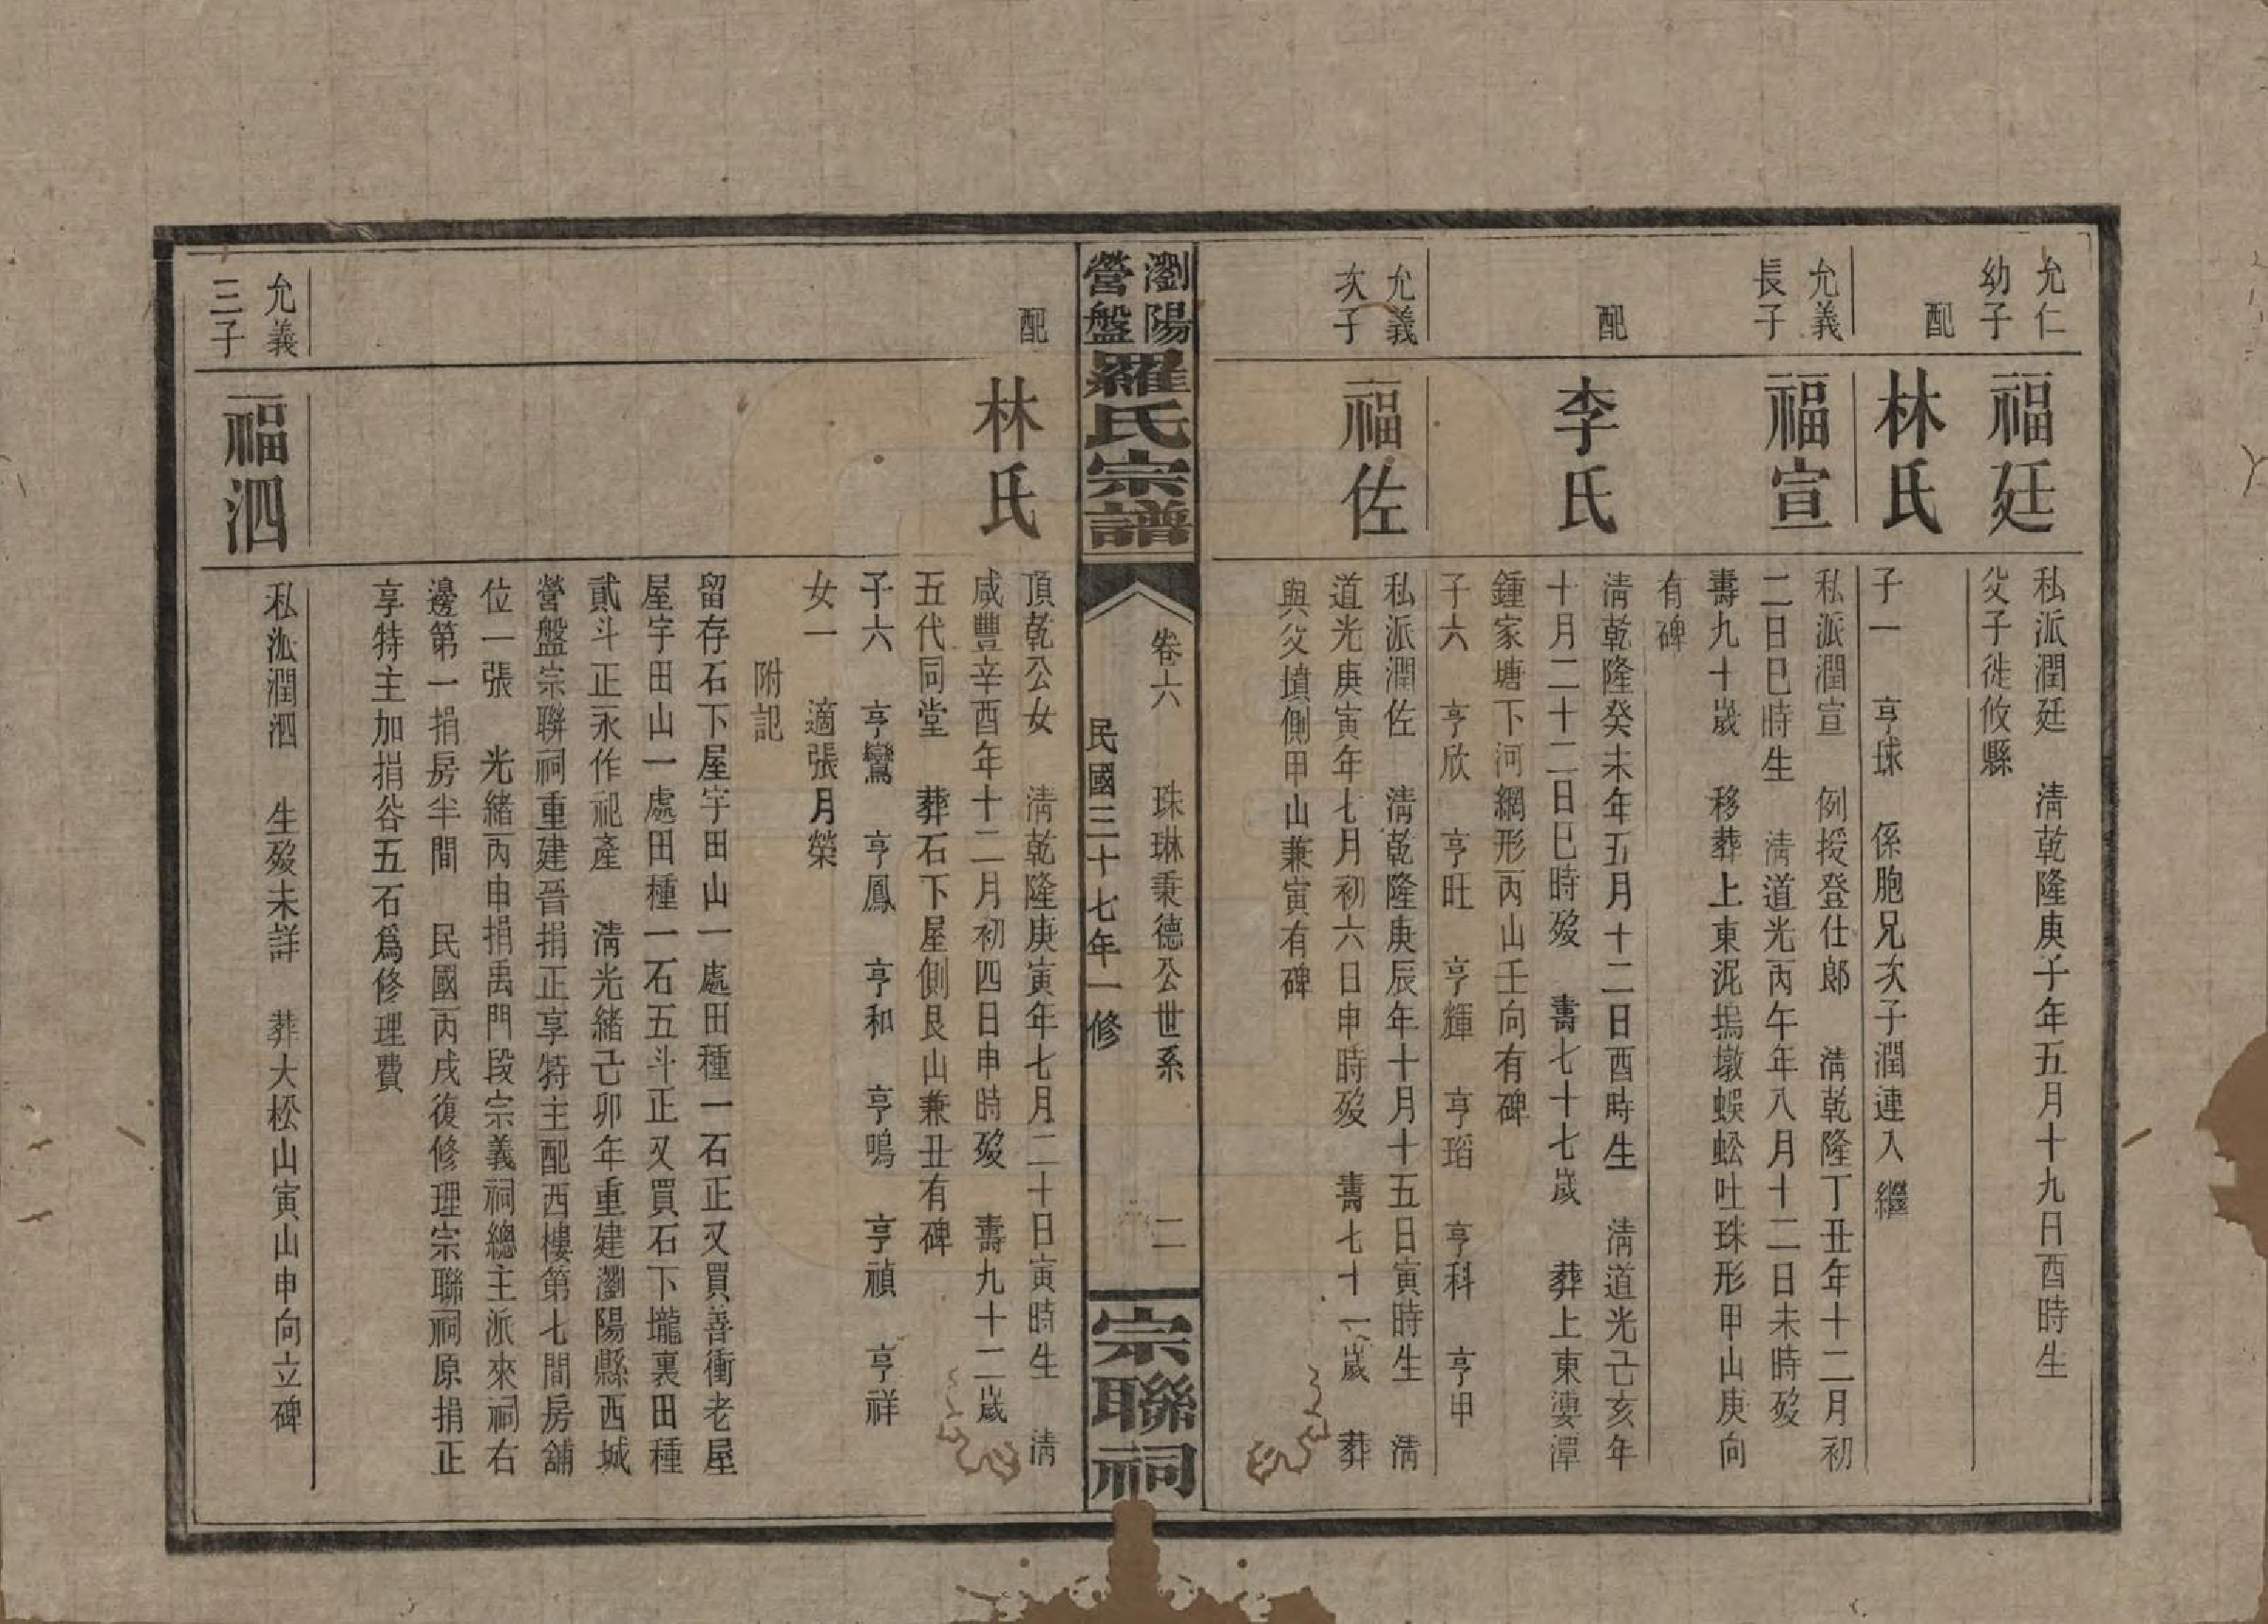 允仁
幼子
福廷
私派潤廷　清乾隆庚子年五月十九日酉時生
父子徙攸縣
配
林氏
子一　亨球　係胞兄次子潤連入繼
允義
長子
福宣
私派潤宣　例授登仕郎　清乾隆丁丑年十二月初
二日巳時生　清道光丙午年八月十二日未時歿
壽九十歲　移葬上東泥塢墩蜈蚣吐珠形甲山庚向
有碑
配
李氏
清乾隆癸未年五月十二日酉時生　清道光己亥年
十月二十二日巳時歿　壽七十七歲　葬上東漊潭
鍾家塘下河網形丙山壬向有碑
子六　亨欣　亨旺　亨輝　亨瑫　亨科　亨甲
允義
次子
福佐
私派潤佐　清乾隆庚辰年十月十五日寅時生　清
道光庚寅年七月初六日申時歿　壽七十一歲　葬
與父墳側甲山兼寅有碑
瀏陽
營盤
羅氏宗譜
卷六　珠琳秉德公世系　二
民國三十七年一修
宗聯祠
配
林氏
頂乾公女　清乾隆庚寅年七月二十日寅時生　清
咸豐辛酉年十二月初四日申時歿　壽九十二歲
五代同堂　葬石下屋側艮山兼丑有碑
子六　亨鸞　亨鳳　亨和　亨鳴　亨禎　亨祥
女一　適張月榮
附記
留存石下屋宇田山一處田種一石正又買善衝老屋
屋宇田山一處田種一石五斗正又買石下壠裏田種
貳斗正永作祀產　清光緒己卯年重建瀏陽縣西城
營盤宗聯祠重建晉捐正享特主配西樓第七間房舖
位一張　光緒丙申捐禹門段宗義祠總主派來祠右
邊第一捐房半間　民國丙戌復修理宗聯祠原捐正
享特主加捐谷五石爲修理費
允義
三子
福泗
私派潤泗　生歿未詳　葬大松山寅山申向立碑